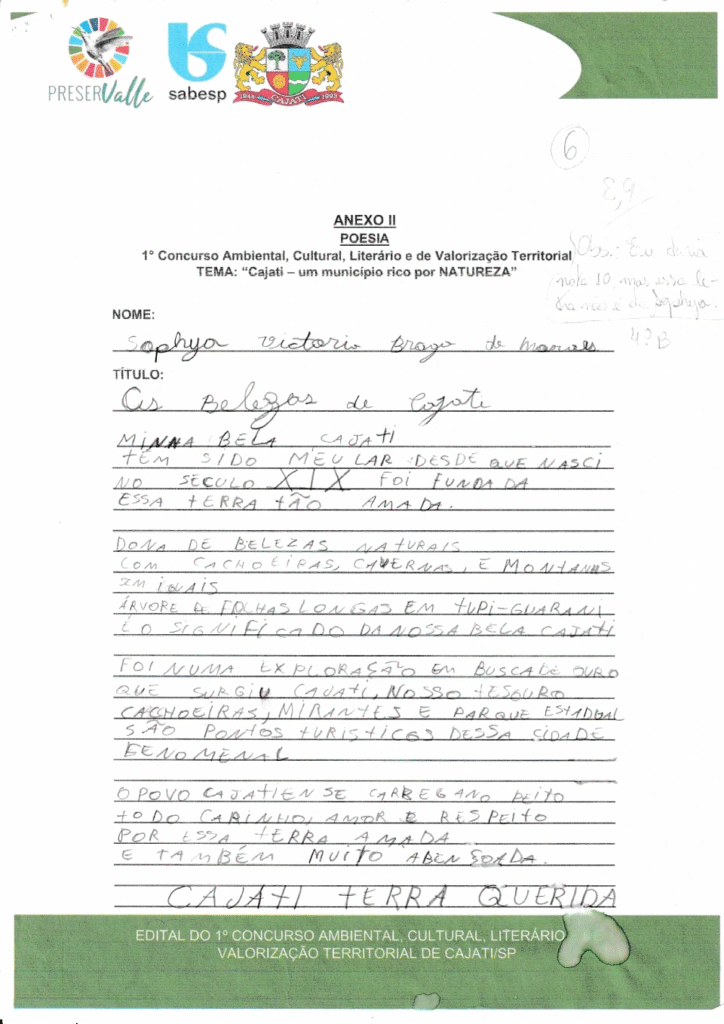 PRESERValle
sabesp
CAJATI
1944 1993
6
8,9
ANEXO II
POESIA
1° Concurso Ambiental, Cultural, Literário e de Valorização Territorial
TEMA: "Cajati – um município rico por NATUREZA"
Obs.: Eu daria
nota 10, mas essa le-
tra não é da Sophya.
4º B
NOME:
Sophya Victoria Braga de Moraes
TÍTULO:
As Belezas de Cajati
MINHA BELA CAJATI
TEM SIDO MEU LAR DESDE QUE NASCI
NO SECULO XIX FOI FUNDADA
ESSA TERRA TÃO AMADA.
DONA DE BELEZAS NATURAIS
COM CACHOEIRAS, CAVERNAS, E MONTANHAS
ÁRVORE DE FOLHAS LONGAS EM TUPI-GUARANI
É O SIGNIFICADO DA NOSSA BELA CAJATI
FOI NUMA EXPLORAÇÃO EM BUSCA DE OURO
QUE SURGIU CAJATI, NOSSO TESOURO
CACHOEIRAS, MIRANTES E PARQUE ESTADUAL
SÃO PONTOS TURISTICOS DESSA CIDADE
FENOMENAL
O POVO CAJATIENSE CARREGA NO PEITO
TODO CARINHO, AMOR E RESPEITO
POR ESSA TERRA AMADA
E TAMBÉM MUITO ABENÇOADA.
CAJATI TERRA QUERIDA
EDITAL DO 1º CONCURSO AMBIENTAL, CULTURAL, LITERÁRIO
VALORIZAÇÃO TERRITORIAL DE CAJATI/SP